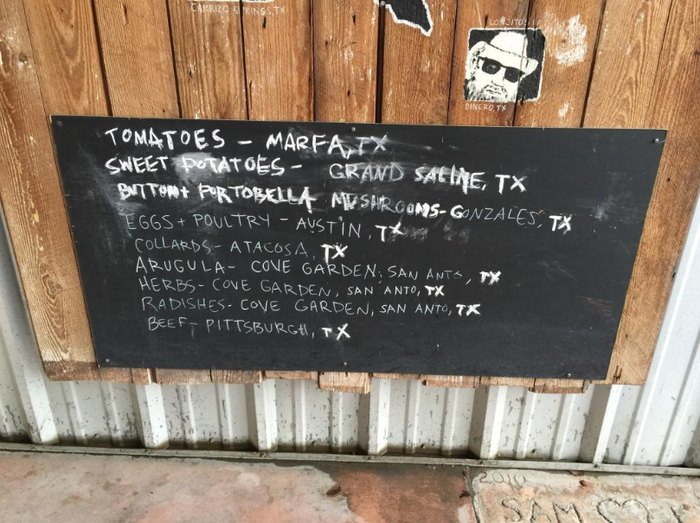 CARRIZO SPRINGS, TX
DINERO, TX
TOMATOES - MARFA, TX
SWEET POTATOES - GRAND SALINE, TX
BUTTON + PORTOBELLA MUSHROOMS - GONZALES, TX
EGGS + POULTRY - AUSTIN, TX
COLLARDS - ATACOSA, TX
ARUGULA - COVE GARDEN, SAN ANTO, TX
HERBS - COVE GARDEN, SAN ANTO, TX
RADISHES - COVE GARDEN, SAN ANTO, TX
BEEF - PITTSBURGH, TX
2010
SAM